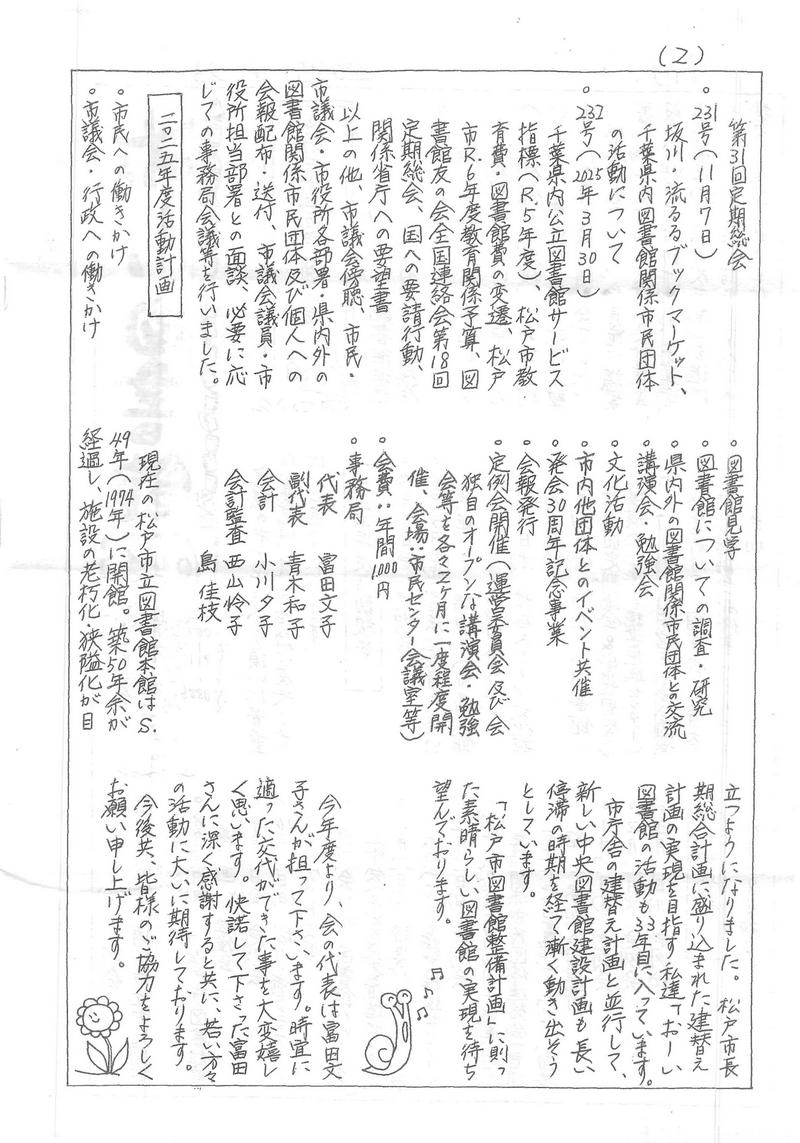 (2)
第31回定期総会
○231号(11月7日)
坂川・流るるブックマーケット、
千葉県内図書館関係市民団体
の活動について
○232号(2025年3月30日)
千葉県内公立図書館サービス
指標(R.5年度)、松戸市教
育費・図書館費の変遷、松戸
市R.6年度教育関係予算、図
書館友の会全国連絡会第18回
定期総会、国への要請行動、
関係省庁への要望書
以上の他、市議会傍聴、市民・
市議会・市役所各部署・県内外の
図書館関係市民団体及び個人への
会報配布・送付、市議会議員・市
役所担当部署との面談、必要に応
じての事務局会議等を行いました。
二〇二五年度活動計画
○市民への働きかけ
○市議会・行政への働きかけ
○図書館見学
○図書館についての調査・研究
○県内外の図書館関係市民団体との交流
○講演会・勉強会
○文化活動
○市内他団体とのイベント共催
○発会30周年記念事業
○会報発行
○定例会開催(運営委員会及び会
独自のオープンな講演会・勉強
会等を各々2ヶ月に一度程度開
催、会場:市民センター会議室等)
○会費:年間1,000円
○事務局
代表 富田文子
副代表 青木和子
会計 小川夕子
会計監査 西山怜子
島佳枝
現在の松戸市立図書館本館はS.
49年(1974年)に開館。築50年余が
経過し、施設の老朽化・狭隘化が目
立つようになりました。松戸市長
期総合計画に盛り込まれた建替え
計画の実現を目指す私達「おーい
図書館の活動も33年目に入っています。
市庁舎の建替え計画と並行して、
新しい中央図書館建設計画も長い
停滞の時期を経て漸く動き出そう
としています。
「松戸市図書館整備計画」に則っ
た素晴らしい図書館の実現を待ち
望んでおります。
今年度より、会の代表は富田文
子さんが担って下さいます。時宜に
適った交代ができた事を大変嬉し
く思います。快諾して下さった富田
さんに深く感謝すると共に、若い方々
の活動に大いに期待しております。
今後共、皆様のご協力をよろしく
お願い申し上げます。